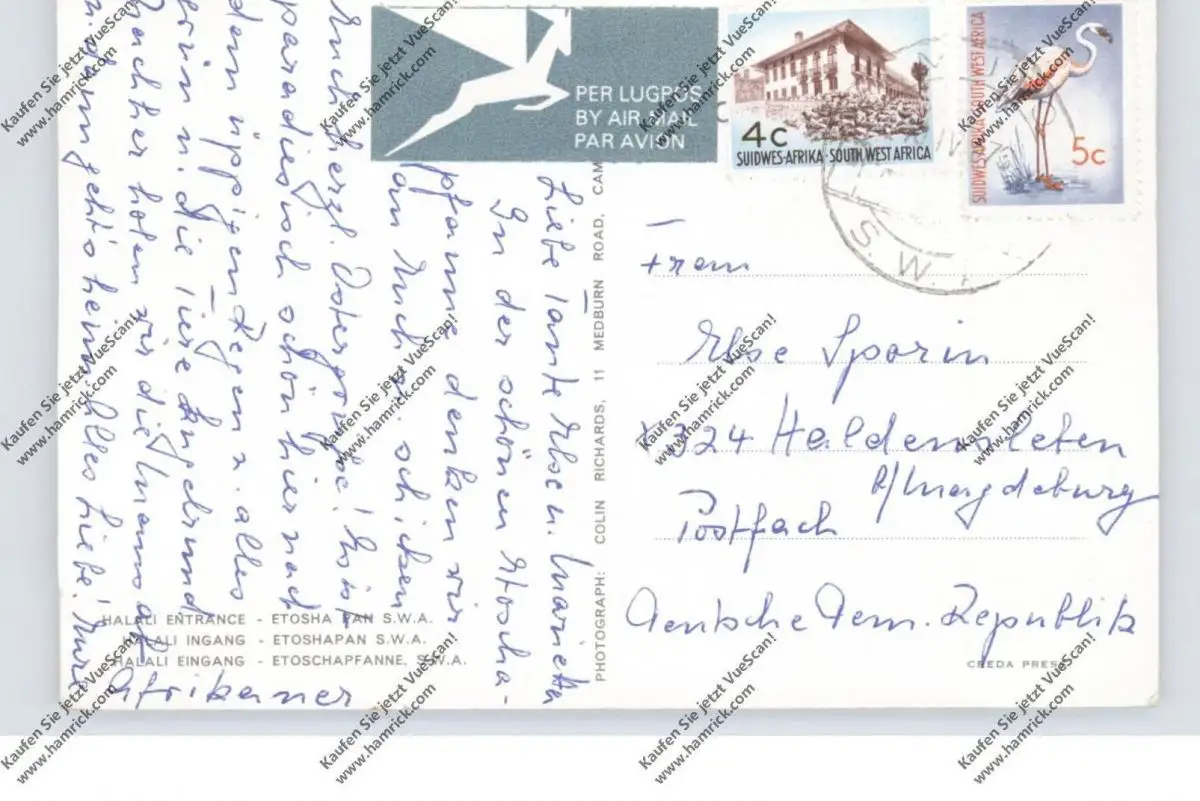 PER LUGPOS
BY AIR MAIL
PAR AVION
4c
SUIDWES-AFRIKA · SOUTH WEST AFRICA
SUIDWES-AFRIKA · SOUTH WEST AFRICA
5c
S. W.
Liebe Tante Else u. Marieta
In der schönen Etoscha-
pfanne denken wir
an Euch u. schicken
Euch herzl. Ostergrüße! Es ist
paradiesisch schön hier nach
dem üppigen Regen u. alles
grün u. die Tiere kugelrund
Nachher holen wir die
geht's heim. Alles Liebe! Eure
Afrikaner
PHOTOGRAPH: COLIN RICHARDS, 11 MEDBURN ROAD, CAM
Else Sporin
X324 Haldensleben
b/Magdeburg
Postfach
Deutsche Dem. Republik
HALALI ENTRANCE - ETOSHA PAN S.W.A.
HALALI INGANG - ETOSHAPAN S.W.A.
HALALI EINGANG - ETOSCHAPFANNE, S.W.A.
CREDA PRESS
Kaufen Sie jetzt VueScan!
www.hamrick.com